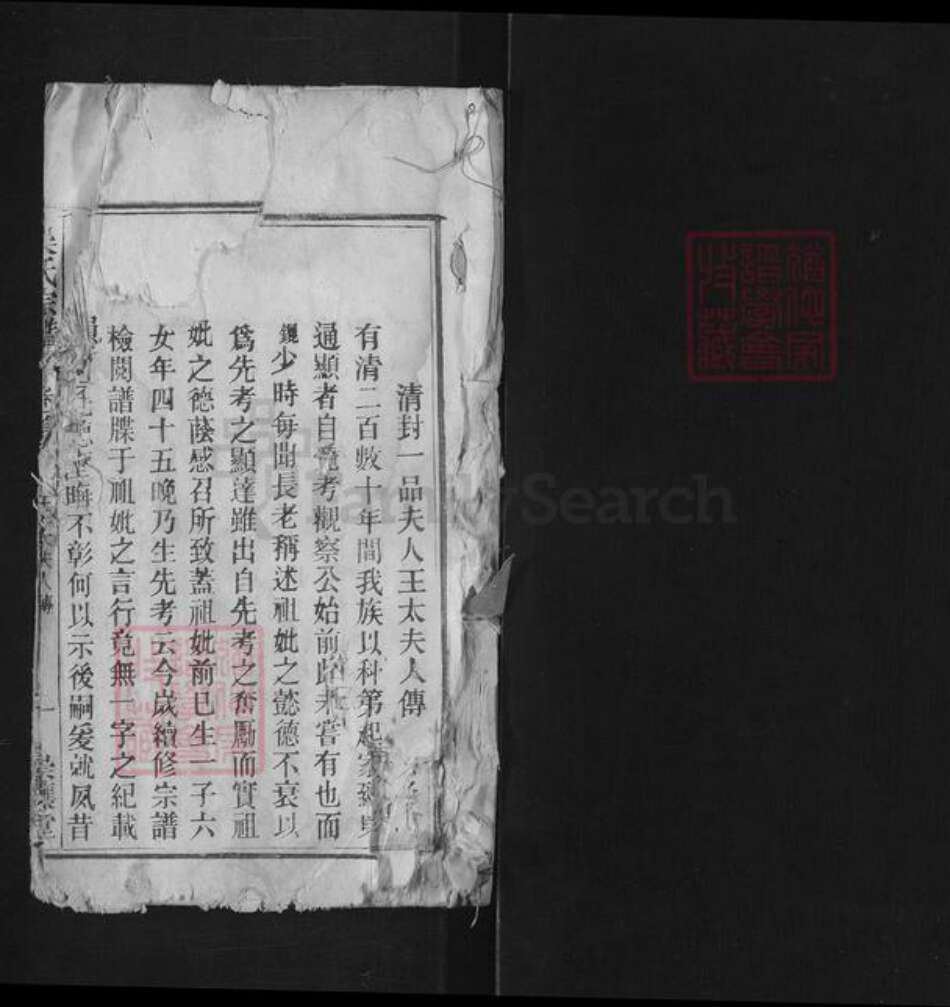 清封一品夫人王太夫人傳
有清二百數十年間我族以科第起家
通顯者自先考觀察公始前此未嘗有也而
鑑少時每聞長老稱述祖妣之懿德不衰以
為先考之顯達雖出自先考之奮勵而實祖
妣之德蔭感召所致蓋祖妣前已生一子六
女年四十五晚乃生先考云今歲續修宗譜
檢閱譜牒于祖妣之言行竟無一字之紀載
晦不彰何以示後嗣爰就夙昔
吳氏宗譜
夫人傳
一
堂
FamilySearch